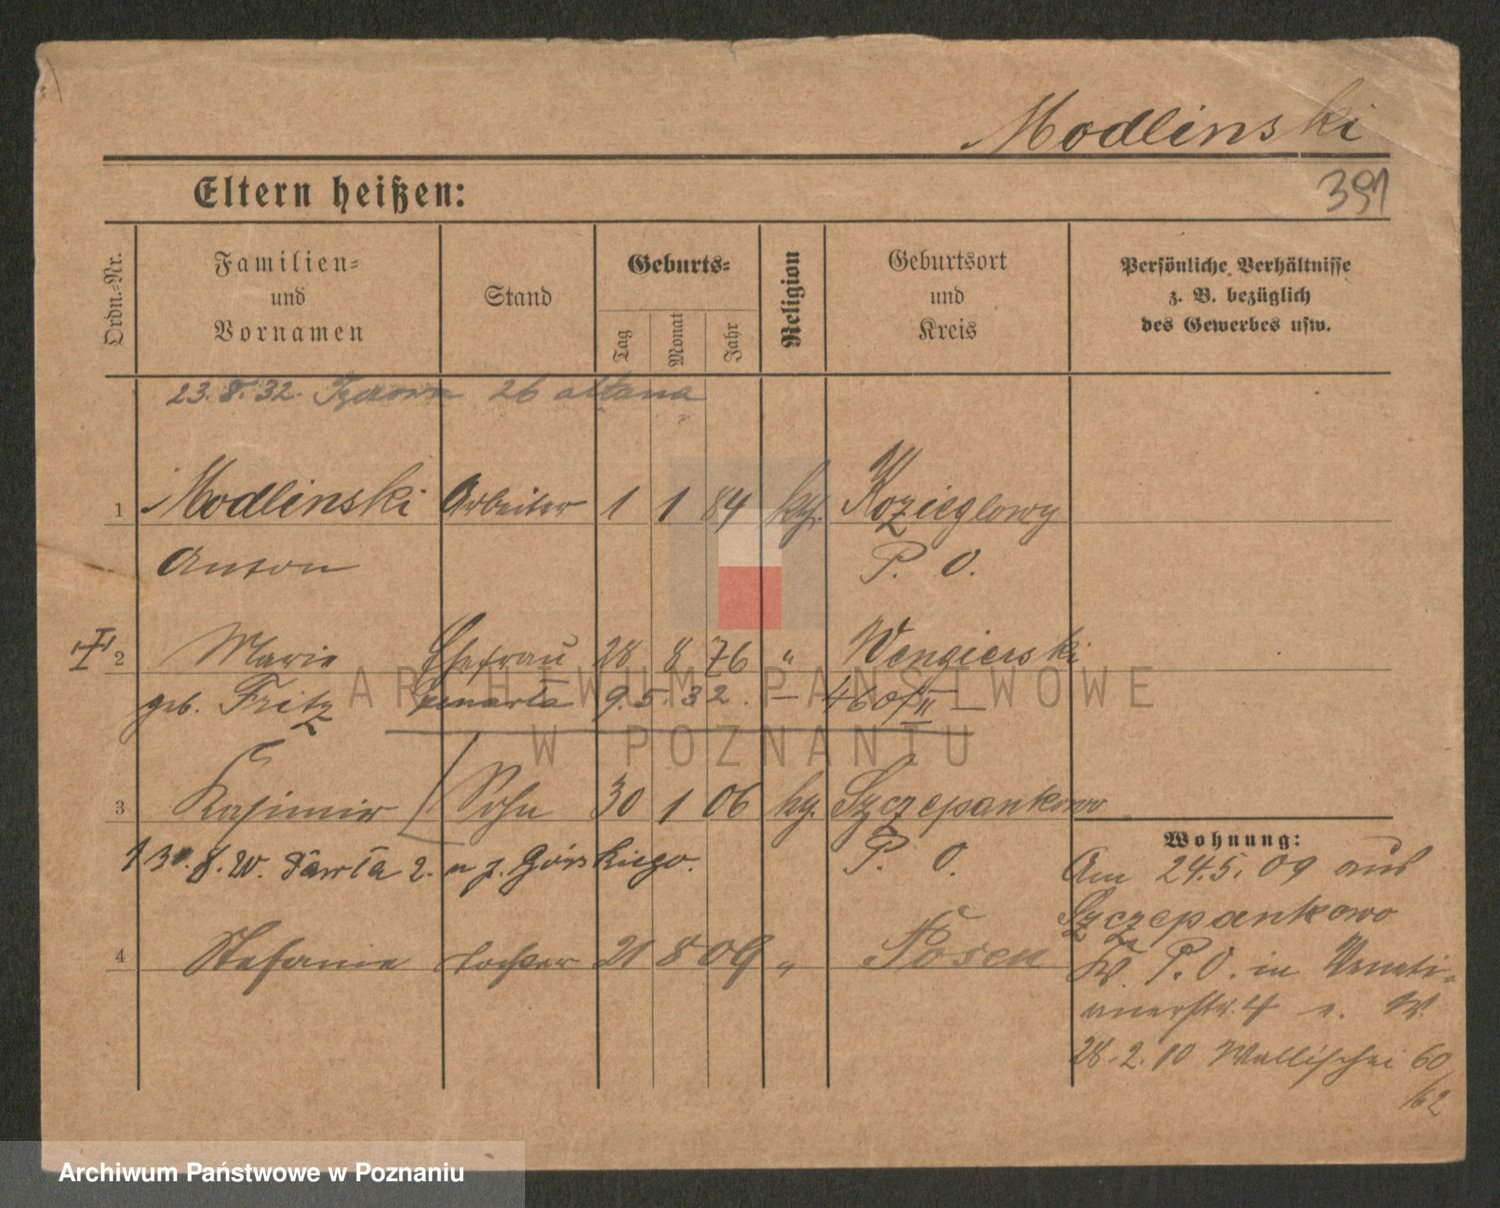 Modlinski
391
Eltern heißen:
Ordn.-Nr.
Familien- und Vornamen
Stand
Geburts-
Tag
Monat
Jahr
Religion
Geburtsort und Kreis
Persönliche Verhältnisse z. B. bezüglich des Gewerbes usw.
23. 8. 32. 26 altana
1 Modlinski Arbeiter 1 1 84 kg. Kozieglowy
Anton P. O.
2 Marie Ehefrau 28 8 76 " Wengierski
geb. Fritz zmarła 9. 5. 32. – 460/II –
3 Kasimir Sohn 30 1 06 kg. Szczepankowo
8. W. 2. u j. Górskiego. P. O.
4 Stefanie Tochter 21 8 09 " Posen
Wohnung:
Am 24.5.09 aus
Szczepankowo
P. O. in Veneti-
anerstr. 4 e. W.
28.2.10 Wallischei 60
/62
ARCHIWUM PAŃSTWOWE
W POZNANIU
Archiwum Państwowe w Poznaniu